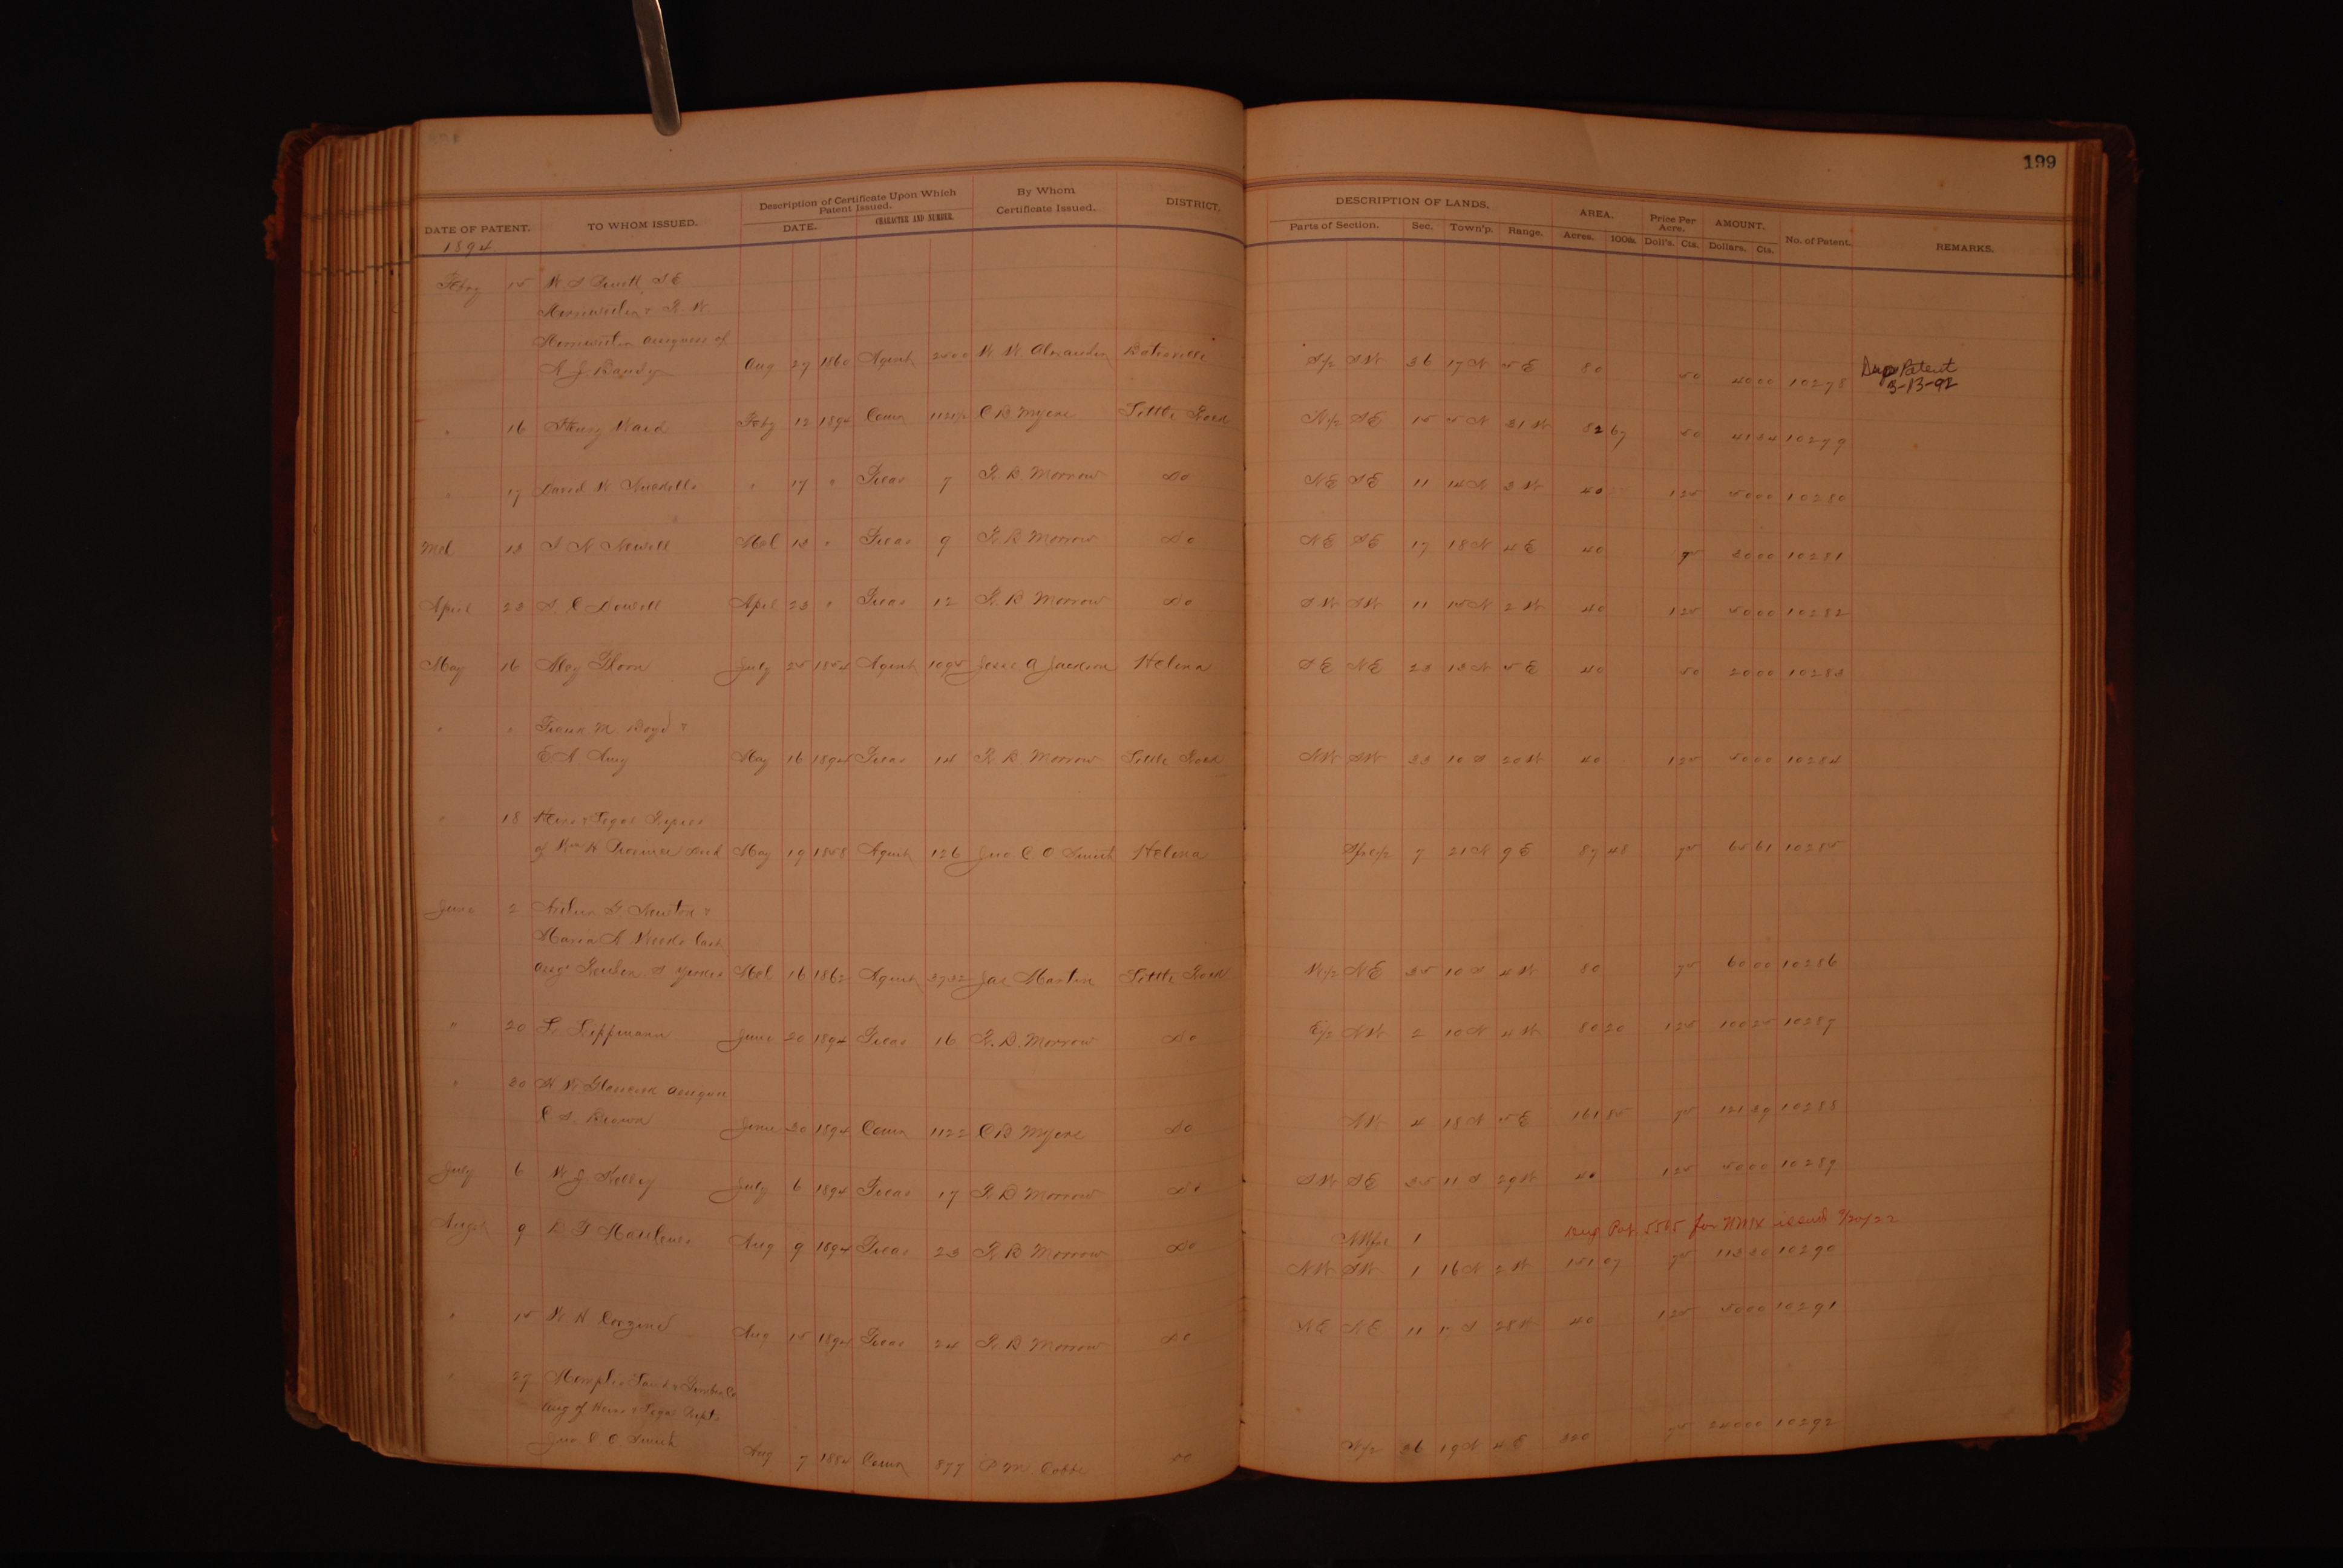 199
DATE OF PATENT. TO WHOM ISSUED. Description of Certificate Upon Which Patent Issued. DATE. CHARACTER AND NUMBER. By Whom Certificate Issued. DISTRICT. DESCRIPTION OF LANDS. Parts of Section. Sec. Town'p. Range. AREA. Acres. 100ths. Price Per Acre. Doll's. Cts. AMOUNT. Dollars. Cts. No. of Patent. REMARKS.
1894
Feby 15 W. S. S E
& R. W.
assignees of
A J Bandy Aug 27 1860 Agent 2500 W. W. Alexander Batesville S/2 SW 36 17N 5E 80 50 40 00 10278 Dup Patent
3-13-92
" 16 Henry Ward Feby 12 1894 Comr C B Myers Little Rock N/2 SE 15 5N 31W 82 67 50 41 34 10279
" 17 David W " 17 " Treas 7 R B Morrow Do NE SE 11 14N 3W 40 1 25 50 00 10280
Mch 13 Newell Mch 13 " Treas 9 R. B Morrow Do NE SE 17 18N 4E 40 75 30 00 10281
April 23 S. C Dowell April 23 " Treas 12 R. B Morrow Do SW SW 11 15N 2W 40 1 25 50 00 10282
May 16 Aley Thorn July 25 1854 Agent 1095 Jesse A Jackson Helena SE NE 23 13N 5E 40 50 20 00 10283
" " Frank M. Boyd &
E A May 16 1894 Treas 14 R B Morrow Little Rock NW SW 33 10S 20W 40 1 25 50 00 10284
" 18 Heirs & Legal Repres
of Wm H Province decd May 19 1858 Agent 126 Jno. C O Smith Helena 7 21N 9E 87 48 75 65 61 10285
June 2 Newton &
Maria A
Reuben S Mch 16 1862 Agent 3732 Jas Martin Little Rock W/2 NE 35 10S 4W 80 75 60 00 10286
" 20 L. Lippmann June 20 1894 Treas 16 R. B. Morrow Do E/2 NW 2 10N 4W 80 20 1 25 100 25 10287
" 30 H W Glasscock assignee
C S. Brown June 30 1894 Comr 1122 C B Myers Do NW 4 18N 5E 161 85 75 121 39 10288
July 6 W J. Kelley July 6 1894 Treas 17 R B Morrow Do SW SE 35 11S 29W 40 1 25 50 00 10289
NWfrl 1 Dup Pat 5565 for issued
August 9 D T Matthews Aug 9 1894 Treas 23 R B Morrow Do NW SW 1 16N 2W 151 07 75 113 30 10290
" 15 W. H Aug 15 1894 Treas 24 R. B Morrow Do NE NE 11 17S 28W 40 1 25 50 00 10291
" 27 Memphis Land & Timber Co
assg of Heirs & Legal Repts
Jno. C O Smith Aug 7 1884 Comr 877 P M Cobbs Do 36 19N 4E 320 75 240 00 10292